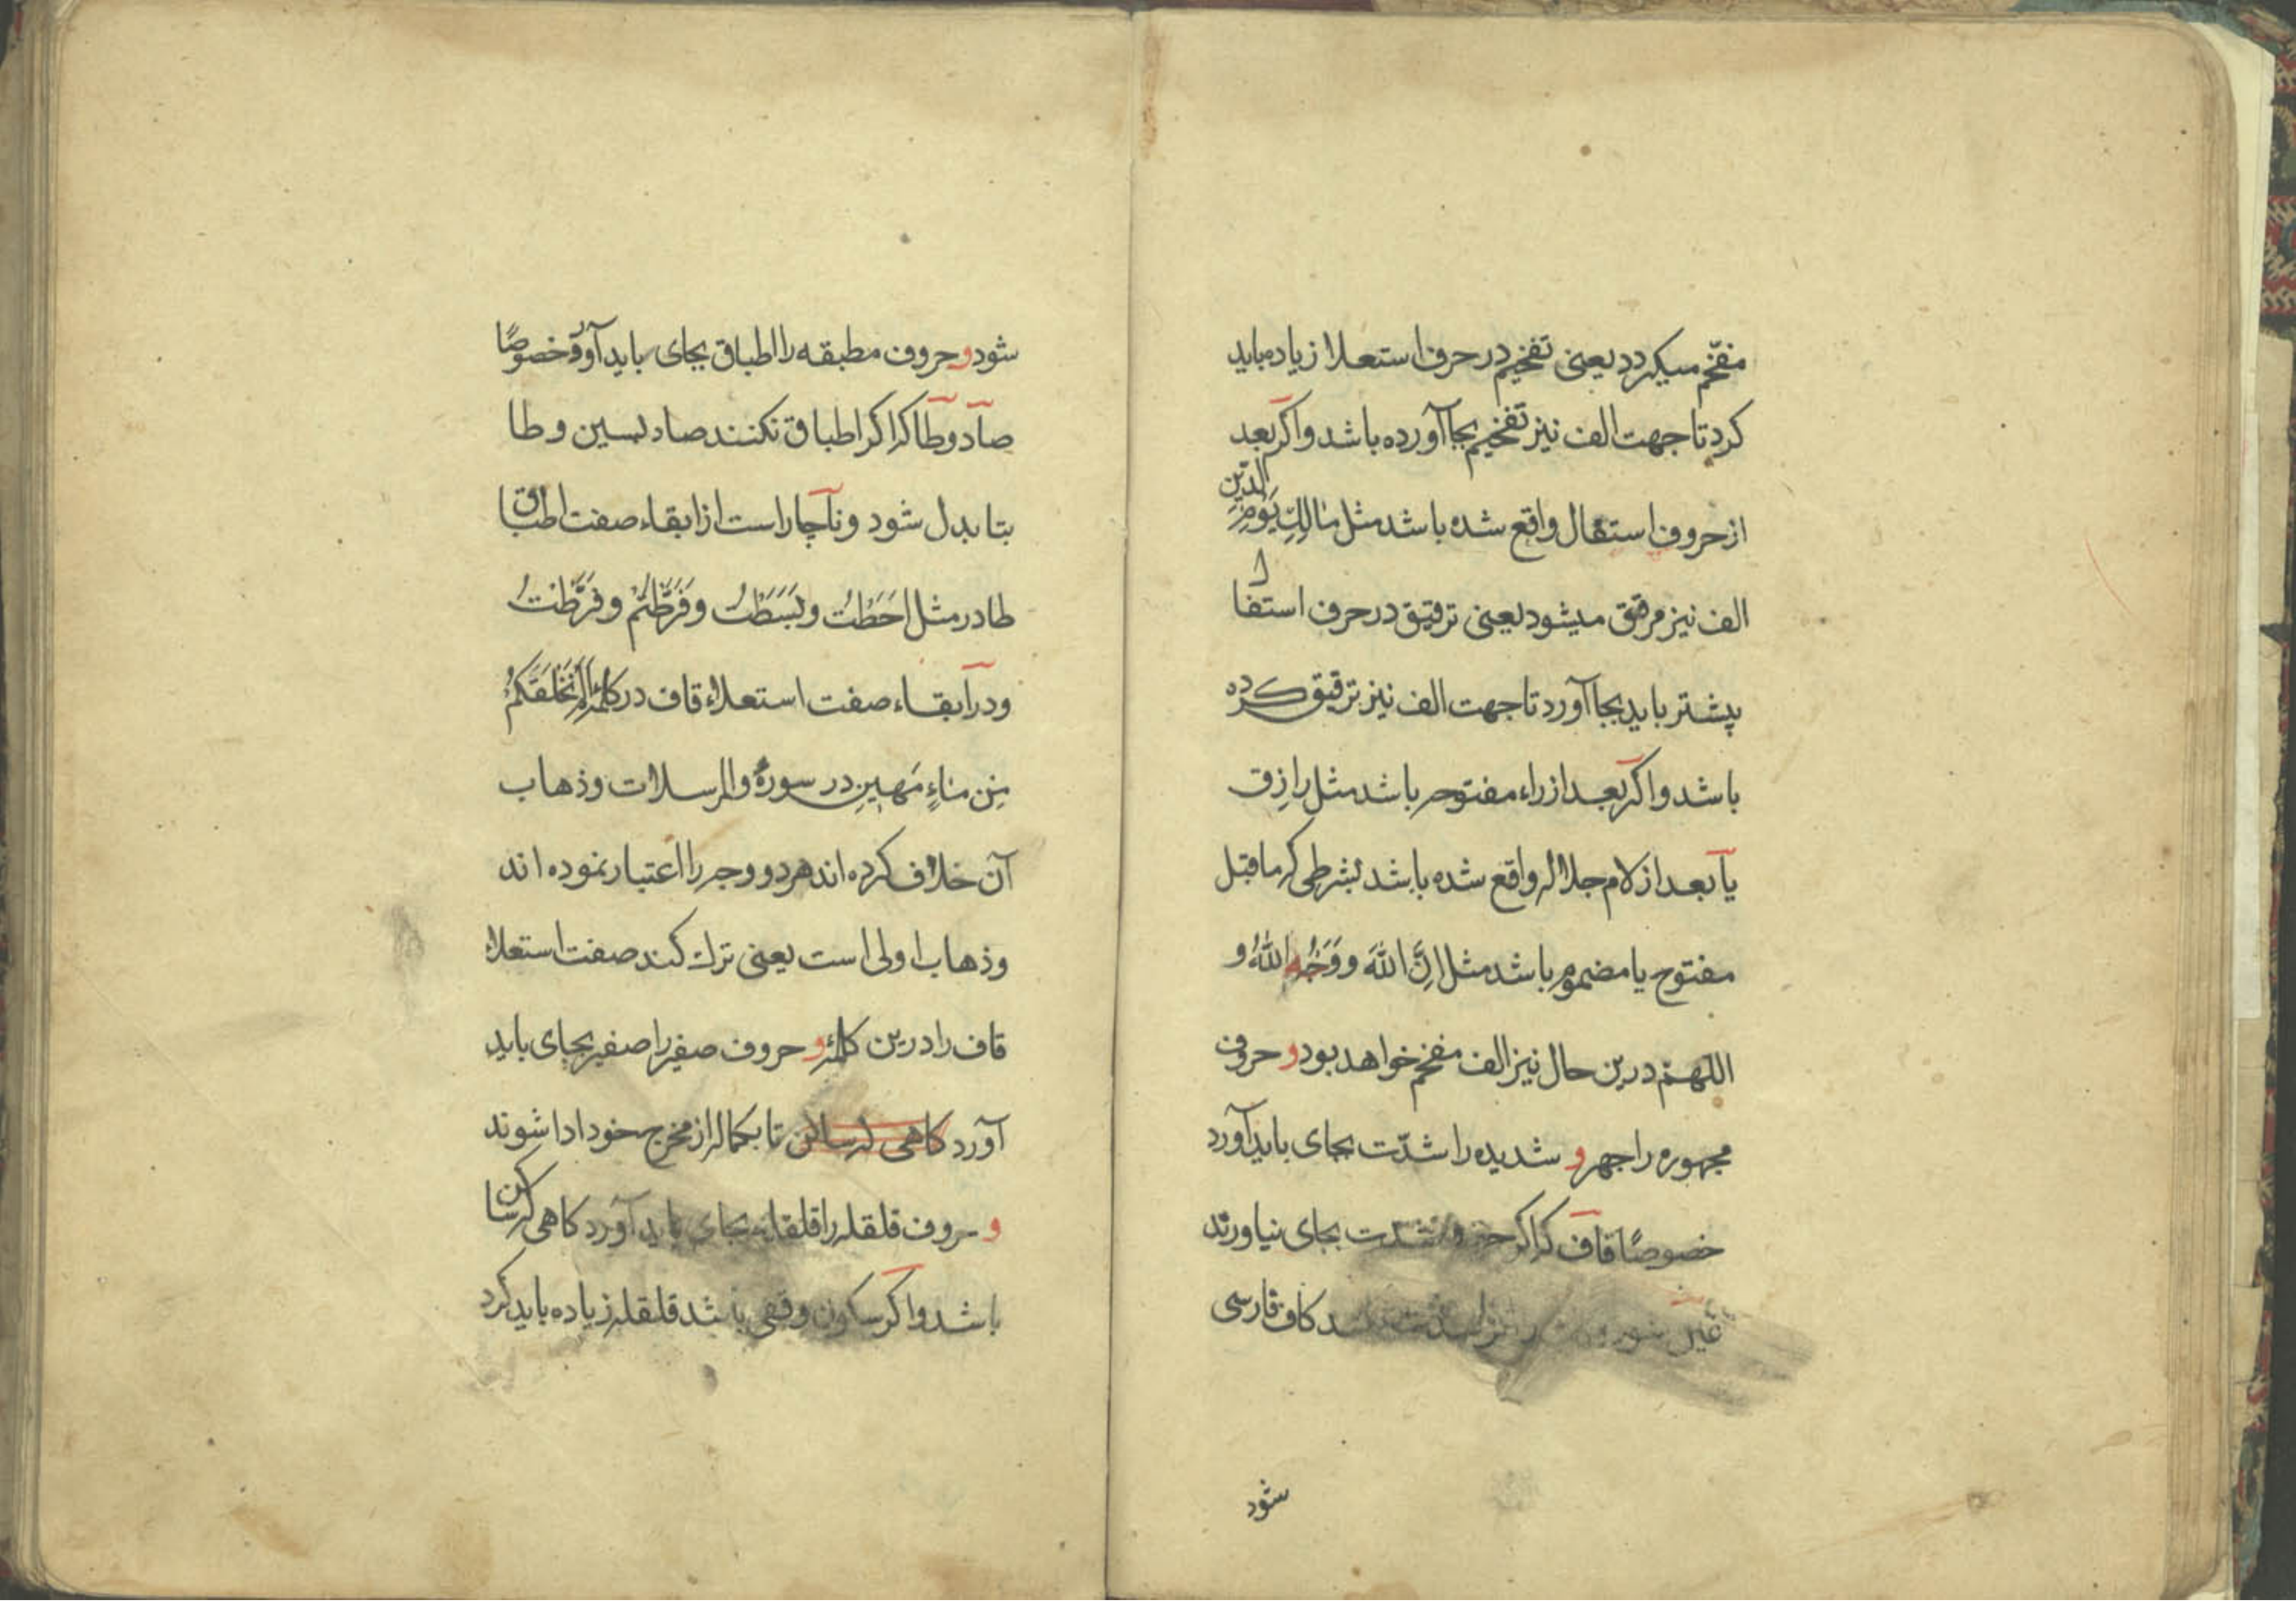 مفخّم میکردد یعنی تفخیم در حرف استعلا زیاده باید
کرد تا جهت الف نیز تفخیم بجا آورده باشد و اکر بعد
از حروف استفال واقع شده باشد مثل مَالِكِ يَوْمِ الدّينِ
الف نیز مرقق میشود یعنی ترقیق در حرف استفال
پیشتر باید بجا آورد تا جهت الف نیز ترقیق کرده
باشد و اکر بعد از راء مفتوحه باشد مثل رازق
یا بعد از لام جلاله واقع شده باشد بشرطی که ماقبل
مفتوح یا مضموم باشد مثل اِنَّ اللّٰهَ و وَجْهُ اللّٰهُ و
اللهمّ درین حال نیز الف مفخم خواهد بود و حروف
مجهوره را جهر و شدیده را شدّت بجای باید آورد
خصوصًا قاف که اکر شدت بجای نیاورند
غین شود کاف فارسی
شود
شود و حروف مطبقه را اطباق بجای باید آورد خصوصًا
صاد و طا که اکر اطباق نکنند صاد بسین و طا
بتا بدل شود و ناچار است از ابقاء صفت اطباق
طا در مثل اَحَطْتُ و بَسَطْتَ و فَرَّطْتُمْ و فَرَّطْتُ
و در ابقاء صفت استعلاء قاف در کلمه اَلَمْ نَخْلُقْكُمْ
مِن مَاءٍ مَهِينٍ در سورهٔ والمرسلات و ذهاب
آن خلاف کرده اند هر دو وجه را اعتبار نموده اند
و ذهاب اولی است یعنی ترك کنند صفت استعلاء
قاف را درین کلمه و حروف صفیر را صفیر بجای باید
آورد کاهی که ساکن تا بکماله از مخرج خود ادا شوند
و حروف قلقله را قلقله بجای باید آورد کاهی که ساکن
باشد و اکر سکون وقفی باشد قلقله زیاده باید کرد